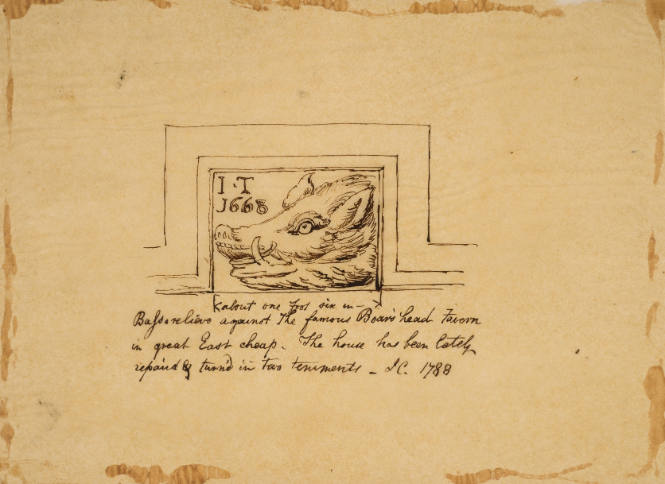 I·T
1668
about one foot six in
Bassorelievo against The famous Boar's head tavern
in great East cheap. The house has been lately
repaird & turnd in two tenments – J.C. 1788